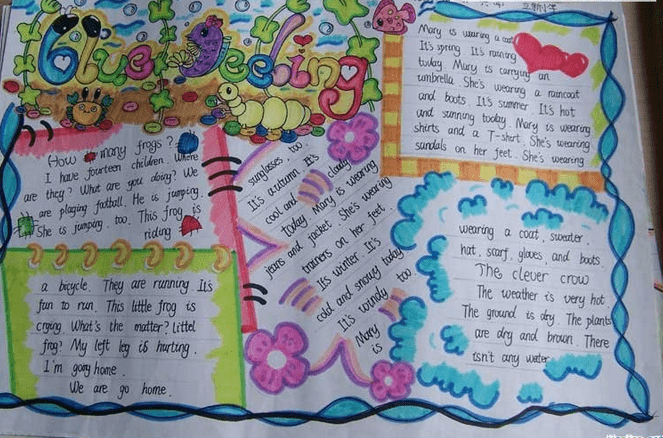 Blue feeling
How many frogs?
I have fourteen children. Where
are they? What are you doing? We
are plaging football. He is jumping.
She is jumping, too. This frog is
riding
a bicycle. They are running. It's
fun to run. This little frog is
crying. What's the matter? Littel
frog? My left leg is hurting.
I'm gong home.
We are go home.
Mary is wearing a coat
It's spring. It's raining
today. Mary is carrying an
umbrella. She's wearing a raincoat
and boots. It's summer. It's hot
and sunning today. Mary is wearing
shirts and a T-shirt. She's wearing
sandals on her feet. She's wearing
sunglasses, too.
It's autumn. It's
cool and cloudy
today. Mary is wearing
jeans and jacket. She's wearing
trainers on her feet.
It's winter. It's
cold and snowy today
It's windy too
Mary
is
wearing a coat, sweater,
hat, scarf, gloves, and boots.
The clever crow
The weather is very hot
The ground is dry. The plants
are dry and brown. There
isn't any water